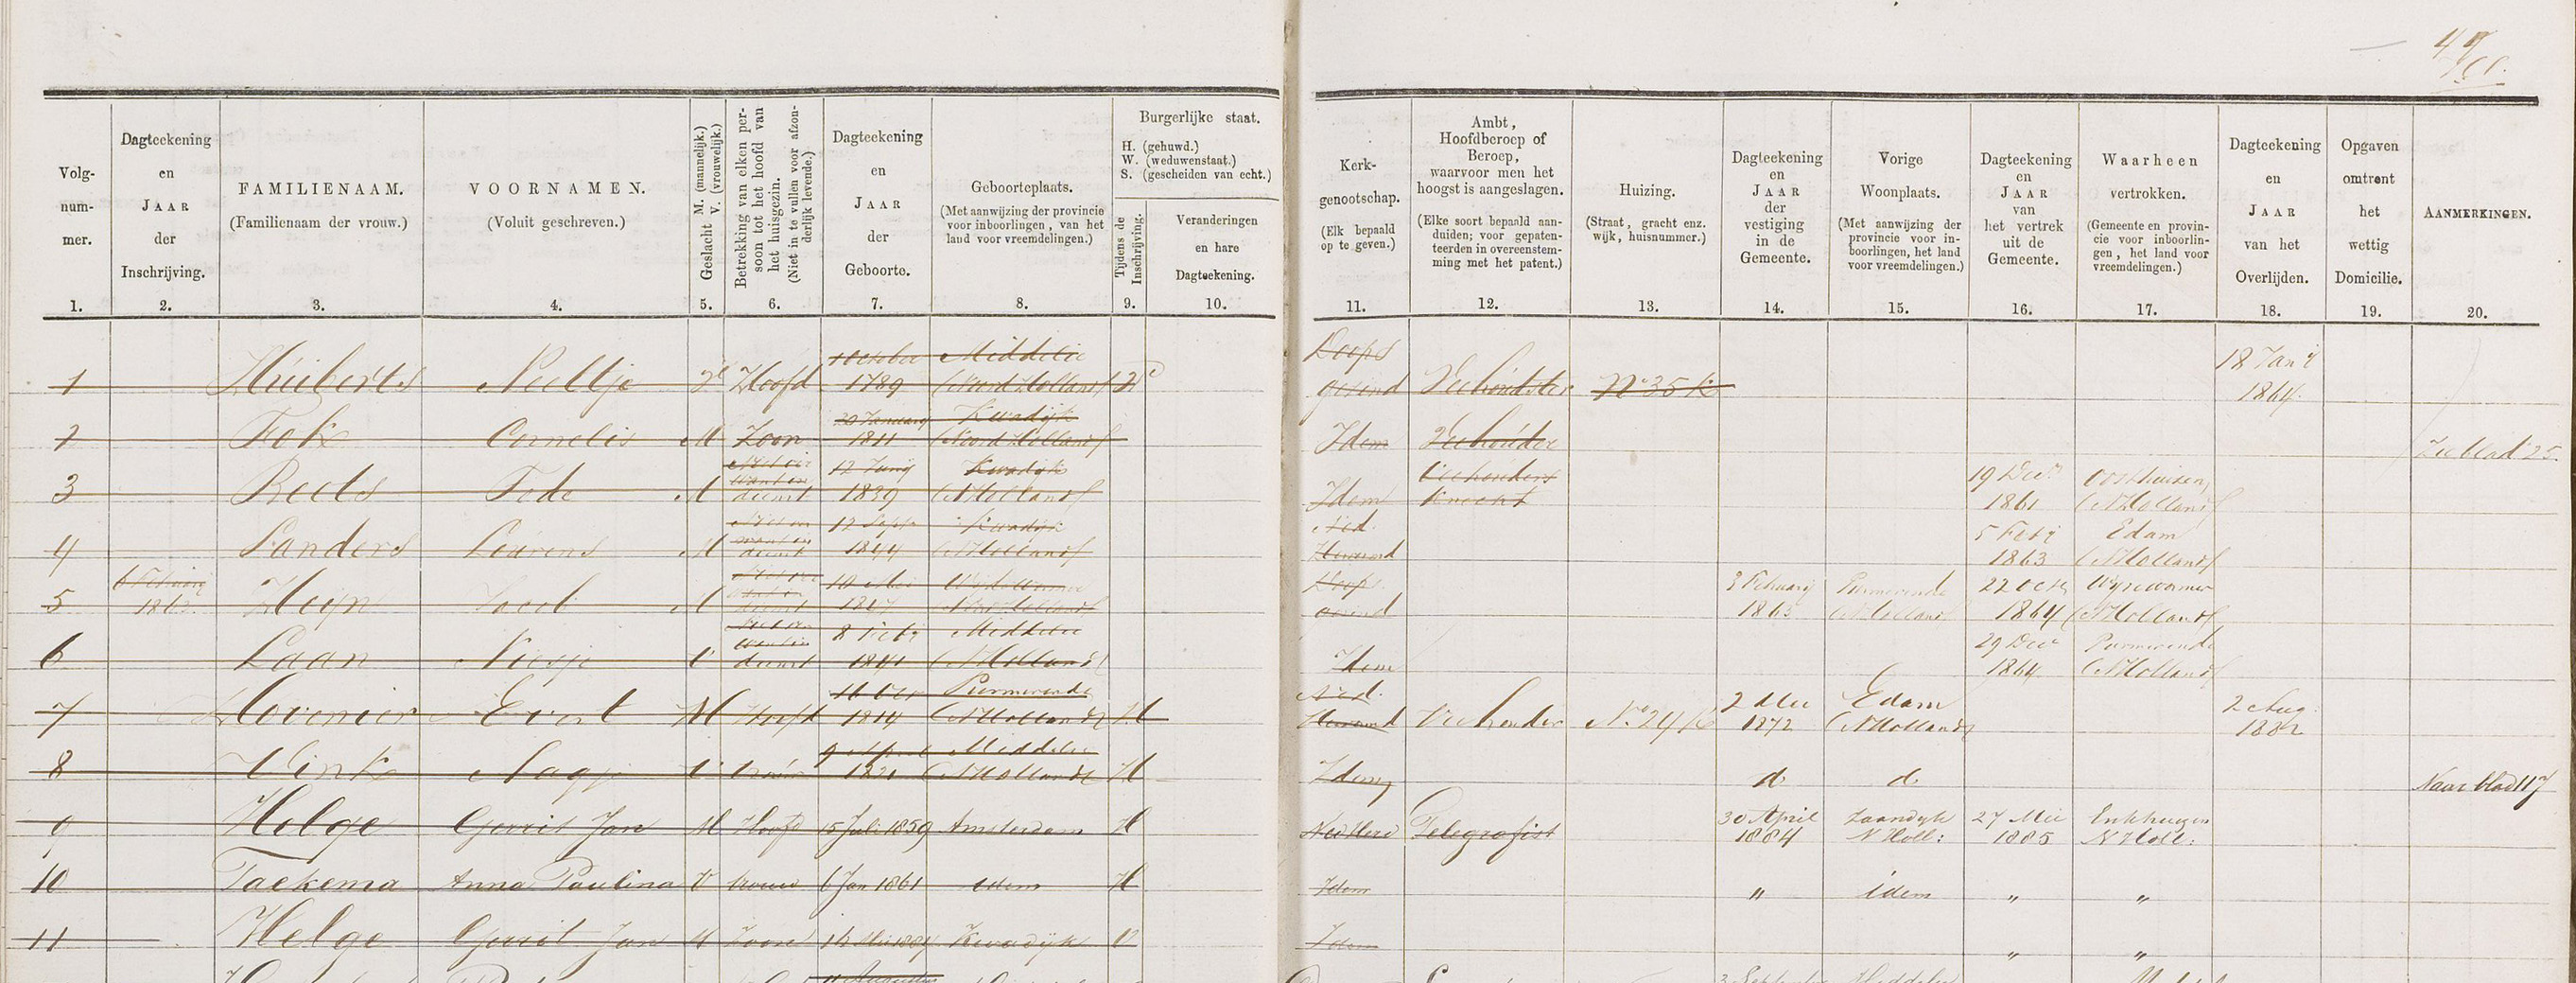 49
Volg-
num-
mer.
1.
Dagteekening
en
JAAR
der
Inschrijving.
2.
FAMILIENAAM.
(Familienaam der vrouw.)
3.
VOORNAMEN.
(Voluit geschreven.)
4.
Geslacht M. (mannelijk.)
V. (vrouwelijk.)
5.
Betrekking van elken per-
soon tot het hoofd van
het huisgezin.
(Niet in te vullen voor afzon-
derlijk levende.)
6.
Dagteekening
en
JAAR
der
Geboorte.
7.
Geboorteplaats.
(Met aanwijzing der provincie
voor inboorlingen, van het
land voor vreemdelingen.)
8.
Burgerlijke staat.
H. (gehuwd.)
W. (weduwenstaat.)
S. (gescheiden van echt.)
Tijdens de
Inschrijving.
9.
Veranderingen
en hare
Dagteekening.
10.
Kerk-
genootschap.
(Elk bepaald
op te geven.)
11.
Ambt,
Hoofdberoep of
Beroep,
waarvoor men het
hoogst is aangeslagen.
(Elke soort bepaald aan-
duiden; voor gepaten-
teerden in overeenstem-
ming met het patent.)
12.
Huizing.
(Straat, gracht enz.
wijk, huisnummer.)
13.
Dagteekening
en
JAAR
der
vestiging
in de
Gemeente.
14.
Vorige
Woonplaats.
(Met aanwijzing der
provincie voor in-
boorlingen, het land
voor vreemdelingen.)
15.
Dagteekening
en
JAAR
van
het vertrek
uit de
Gemeente.
16.
Waarheen
vertrokken.
(Gemeente en provin-
cie voor inboorlin-
gen, het land voor
vreemdelingen.)
17.
Dagteekening
en
JAAR
van het
Overlijden.
18.
Opgaven
omtrent
het
wettig
Domicilie.
19.
AANMERKINGEN.
20.
1 October Middelie Doops 18 Jan
1 Huiberts Neeltje Hoofd 1789 (Noord Holland) gezind Veehoudster No 35 K 1864
20 January Kwadijk
2 Fok Cornelis M Zoon 1811 (Noord Holland) Idem Veehouder Zie blad 25.
12 Junij Kwadijk Veehouders 19 Dec Oosthuizen
3 Beets Fede M dienst 1839 (N Holland) Idem Knecht 1861 (N Holland)
12 Sept Kwadijk Ned. 5 Feb Edam
4 Sanders Lourens M dienst 1844 (N Holland) Hervormd 1863 (N Holland)
6 Februarij 10 Mei Wijdewormer Doops 3 Februarij Purmerende 22 Oct Wijdewormer
5 1863 Heijn Jacob M dienst (N Holland) gezind 1863 (N Holland) 1864 (N Holland)
8 Feb Middelie 29 Dec Purmerende
6 Laan Niesje V dienst 1841 (N Holland) Idem 1864 (N Holland)
16 Purmerende Ned. 2 Mei Edam 2 Aug.
7 Hovenier Evert M Hoofd 1814 (N Holland) H Hervormd Veehouder No 29 K 1872 (N Holland) 1882
9 April Middelie
8 Vink Aagje V vrouw 1821 (N Holland) H Idem d d Naar blad 117
30 April Zaandyk 27 Mei Enkhuizen
9 Helge Gerrit Jan M Hoofd 15 Juli 1859 Amsterdam H Ned Herv Telegrafist 1884 N Holl: 1885 N Holl:
10 Taekema Anna Paulina V vrouw 6 Jan 1861 idem H Idem " idem " "
11 Helge Gerrit Jan M Zoon 16 Mei 1884 Kwadijk O Idem " "
11 Augustus 3 September Middelie